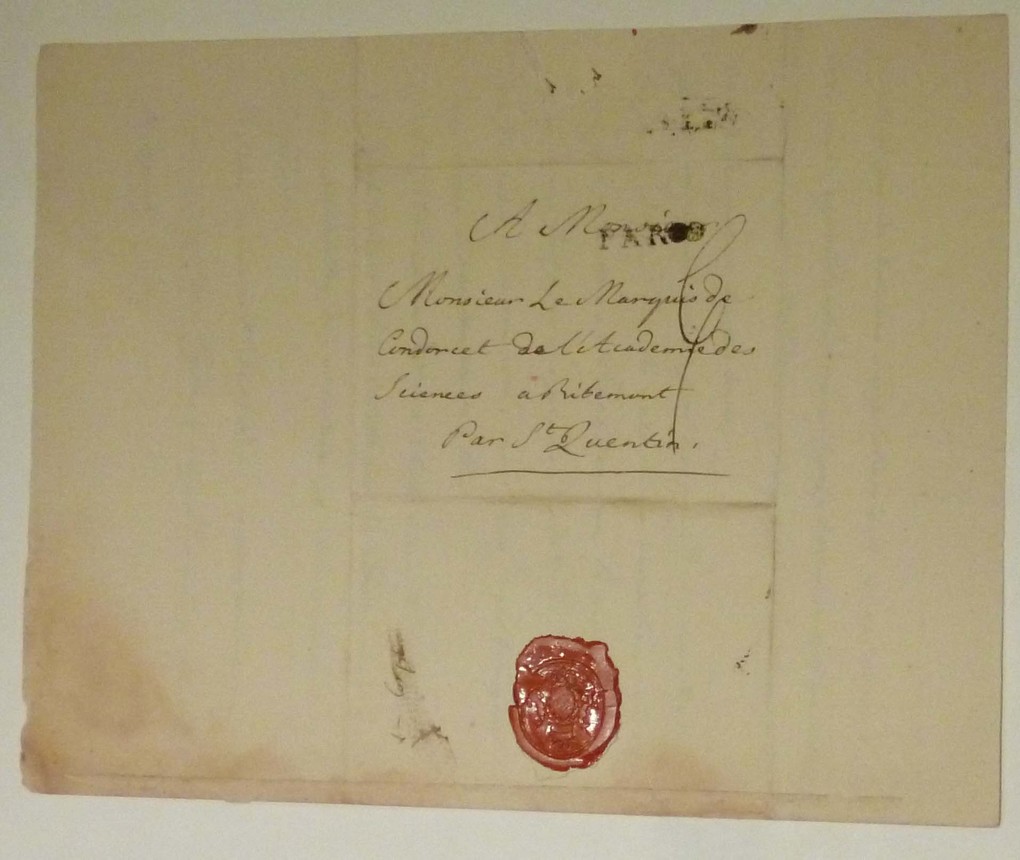 A Monsieur
PARIS
Monsieur Le Marquis de
Condorcet de l'Academie des
Sciences a Ribemont
Par St Quentin.